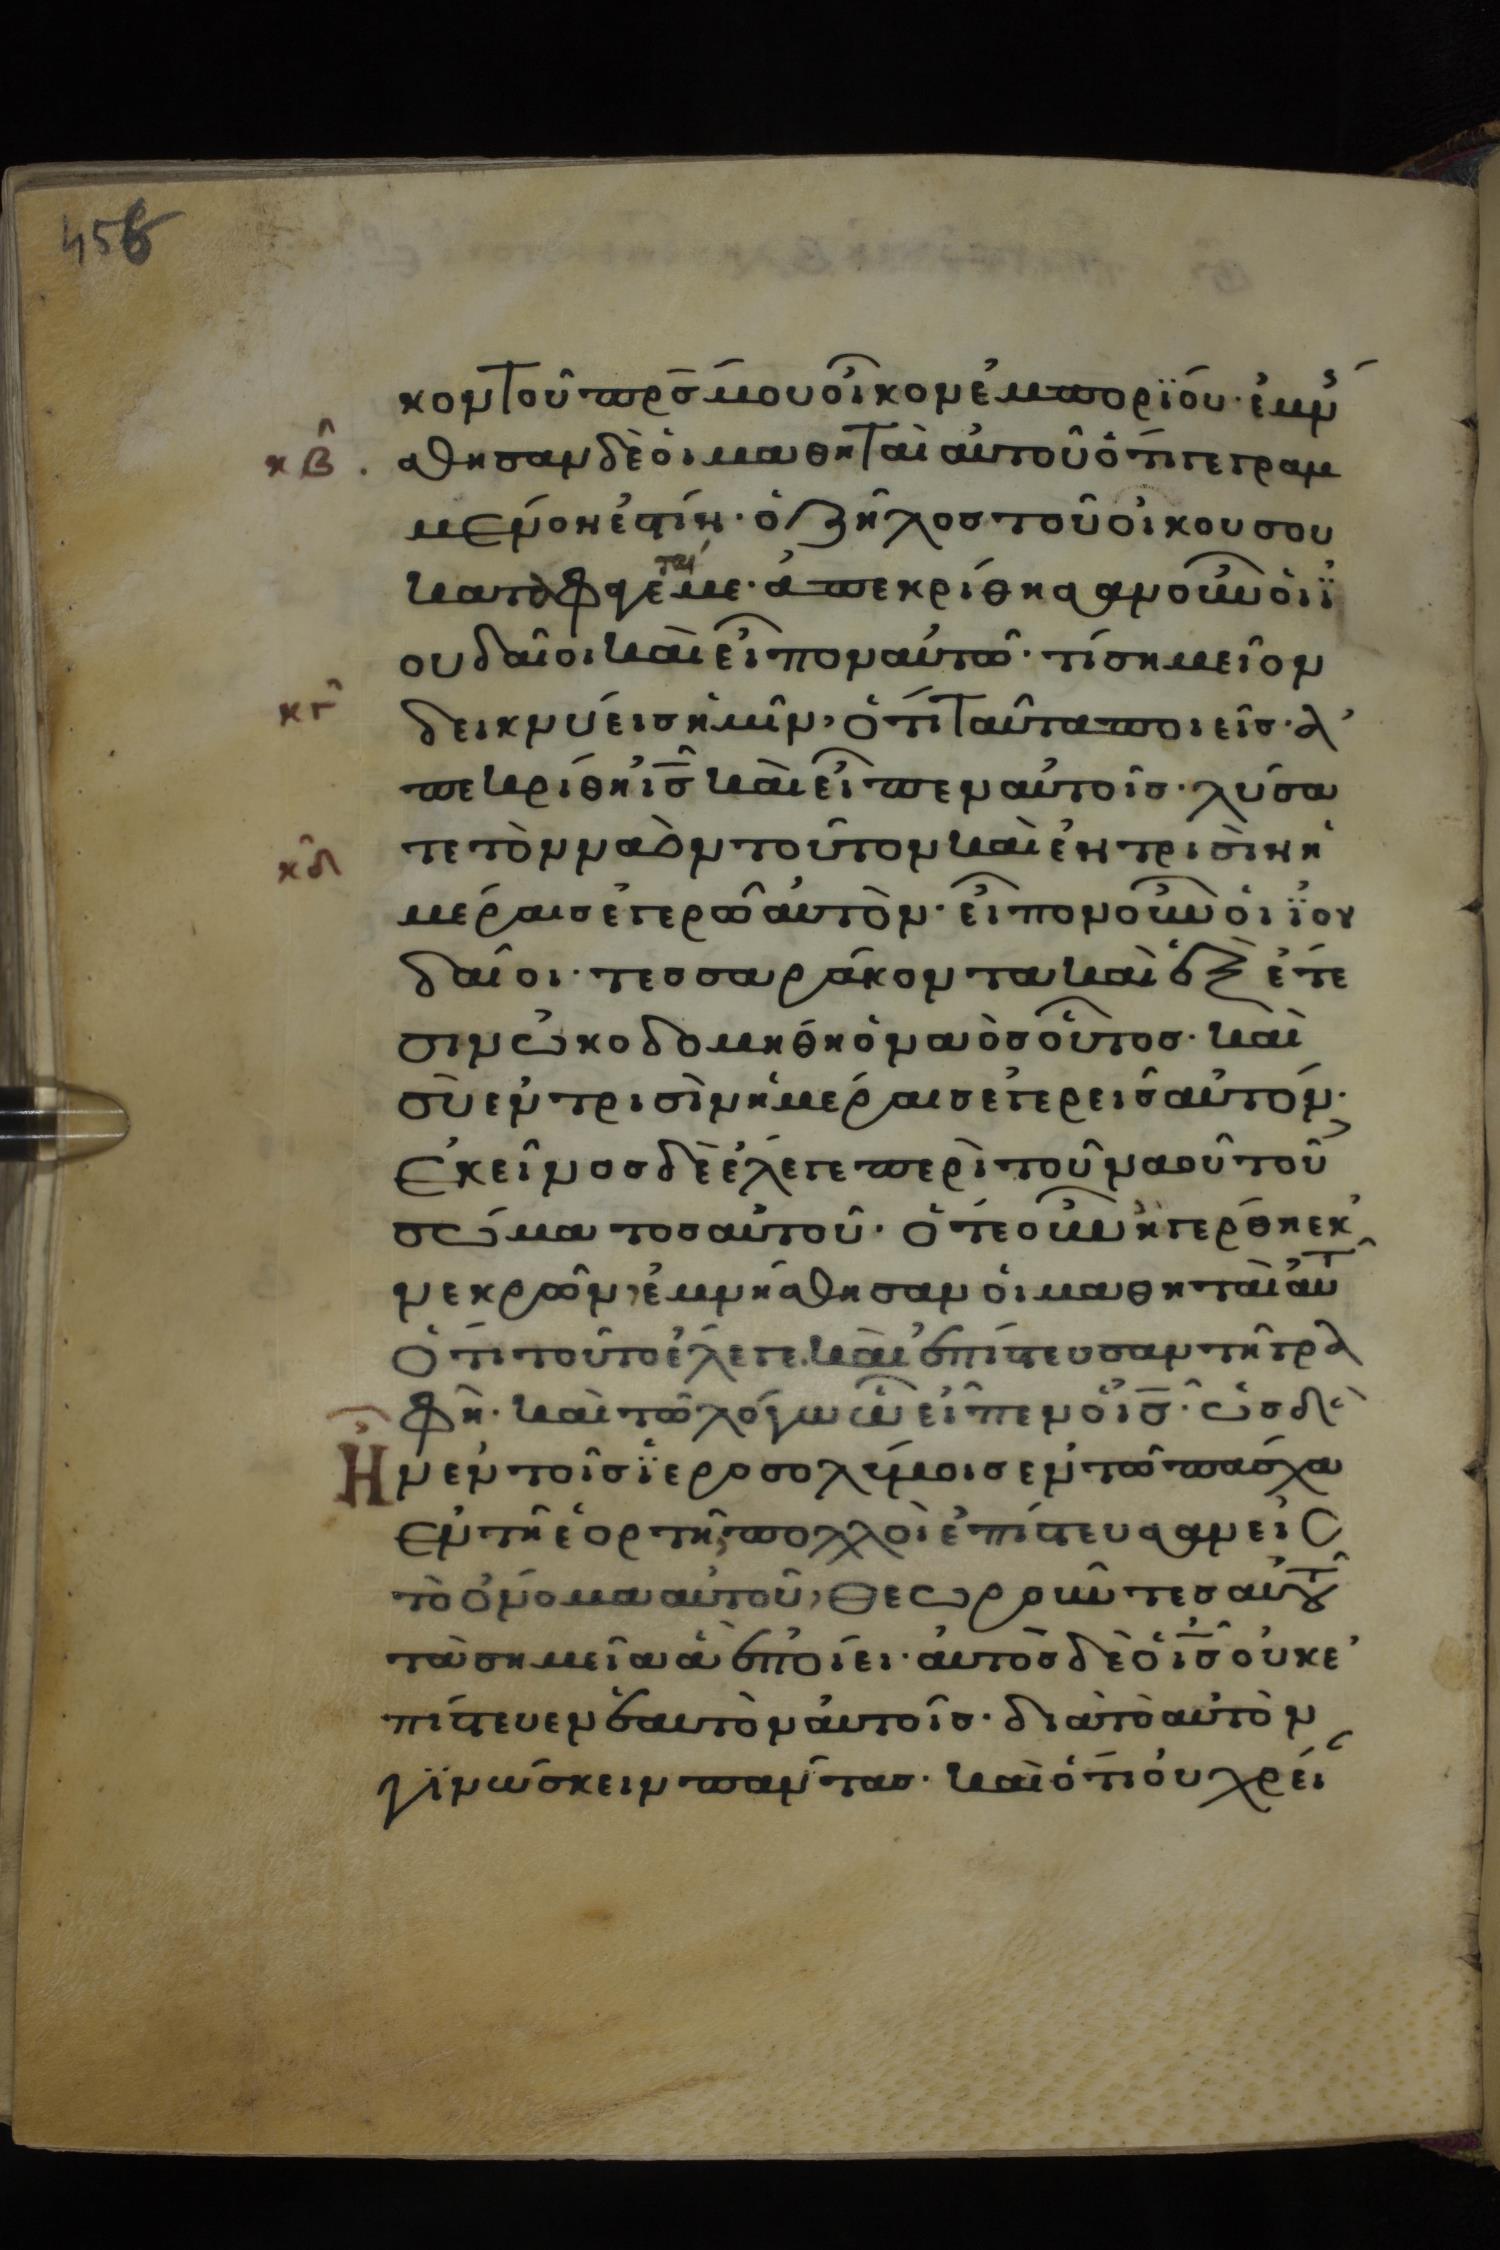 456
κον τοῦ πρ̅ς μου οἶκον ἐμπορΐου· ἐμν
κβ. ήσθησαν δὲ ὁι μαθηταὶ αὐτοῦ ὅτι γεγραμ
μένον ἐστίν· ὁ ζῆλος τοῦ οἴκου σου
καταφάγεταί με· ἀπεκρίθησαν οὖν ὁι ϊ
ουδαῖοι καὶ εἶπον αὐτῶ· τί σημεῖον
κγ δεικνύεις ἡμῖν, ὅτι ταῦτα ποιεῖς· ἀ
πεκρίθη ι̅ς̅ καὶ εἶπεν αὐτοῖς· λύσα
κδ τε τὸν ναὸν τοῦτον καὶ ἐν τρισὶν ἡ
μέραις ἐγερῶ αὐτόν· εἶπον οὖν ὁι ϊου
δαῖοι· τεσσαράκοντα καὶ ἓξ ἔτε
σιν ὠκοδομήθη ὁ ναὸς οὗτος· καὶ
σὺ ἐν τρισὶν ἡμέραις ἐγερεῖς αὐτόν·
ἐκεῖνος δὲ ἔλεγε περὶ τοῦ ναοῦ τοῦ
σώματος αὐτοῦ· ὅτε οὖν ἠγέρθη ἐκ
νεκρῶν, ἐμνήσθησαν ὁι μαθηταὶ ἀυτ
ὅτι τοῦτο ἔλεγε. καὶ ἐπίστευσαν τῆ γρα
φῆ· καὶ τῶ λόγω ὧ εἶπεν ὁ ι̅ς̅· ὡς δὲ
Ἦν ἐν τοῖς ϊεροσολύμοις ἐν τῶ πάσχα
ἐν τῆ ἑορτῆ, πολλοὶ ἐπίστευσαν εἰς
τὸ ὄνομα αὐτοῦ, θεωροῦντες αὐτοῦ
τὰ σημεῖα ἃ ἐποίει· ἀυτὸς δὲ ὁ ι̅ς̅ οὐκ ἐ
πίστευεν ἑαυτὸν ἀυτοῖς· διὰ τὸ αὐτὸν
γϊνώσκειν πάντας· καὶ ὅτι ὀυ χρεί